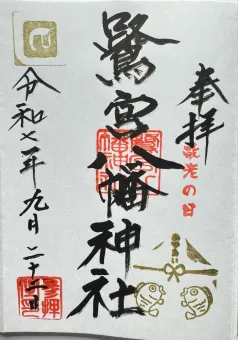 奉拝
敬老の日
鷺宮八幡神社
令和七年九月二十一日